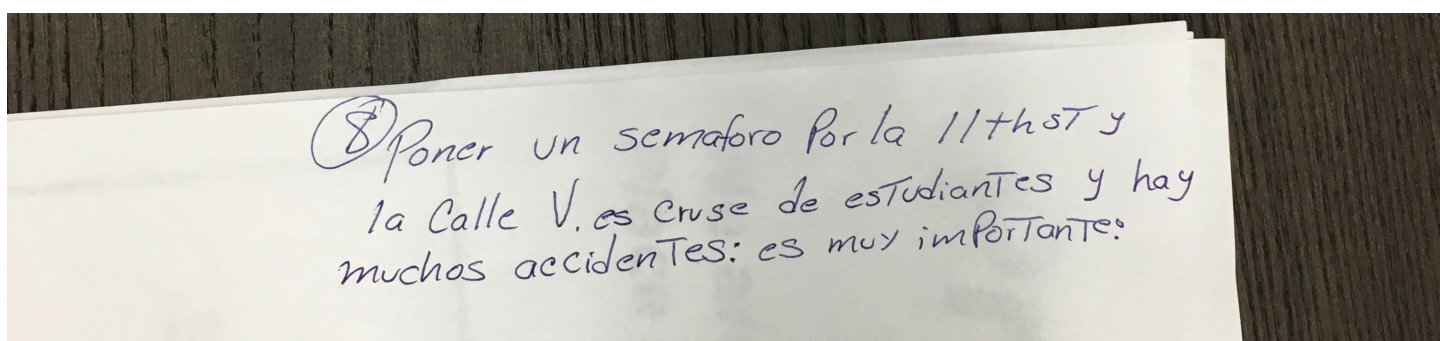 8 Poner un semaforo Por la 11th sT y
la Calle V. es Cruse de esTudianTes y hay
muchos accidenTes: es muy imPorTanTe: